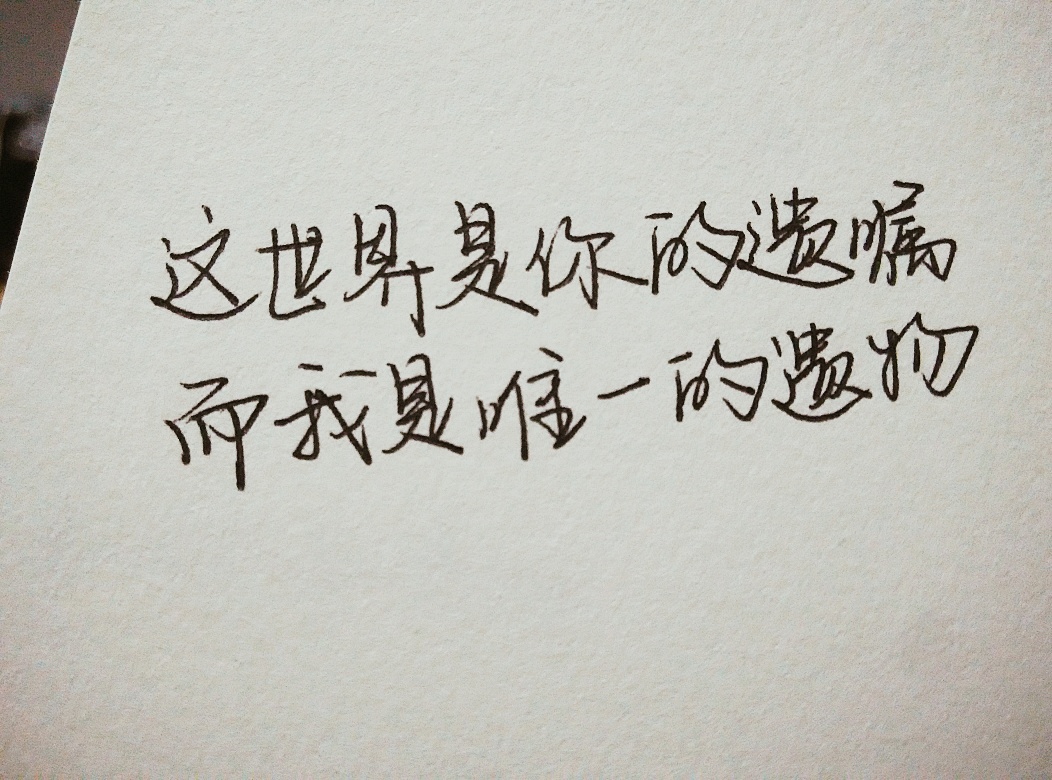 这世界是你的遗嘱
而我是唯一的遗物